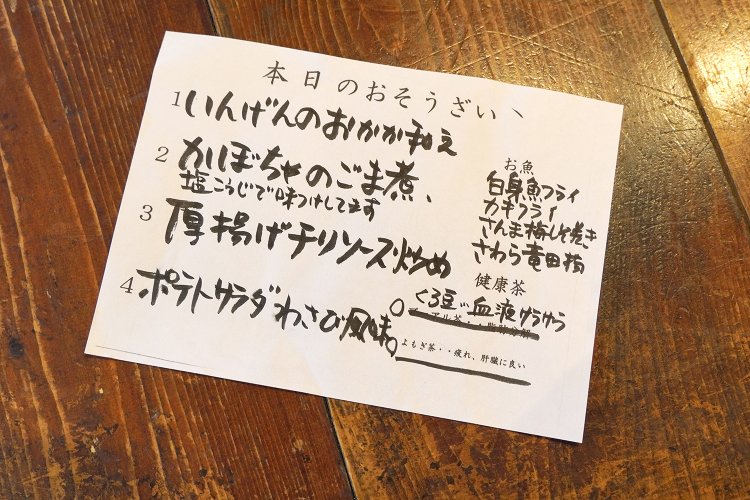 本日のおそうざい
1 いんげんのおかか和え
2 かぼちゃのごま煮、
塩こうじで味つけしてます
3 厚揚げチリソース炒め
4 ポテトサラダわさび風味。
お魚
白身魚フライ
カキフライ
さんま梅しそ巻き
さわら竜田揚
健康茶
くろ豆…血液サラサラ
よもぎ茶・・疲れ、肝臓に良い